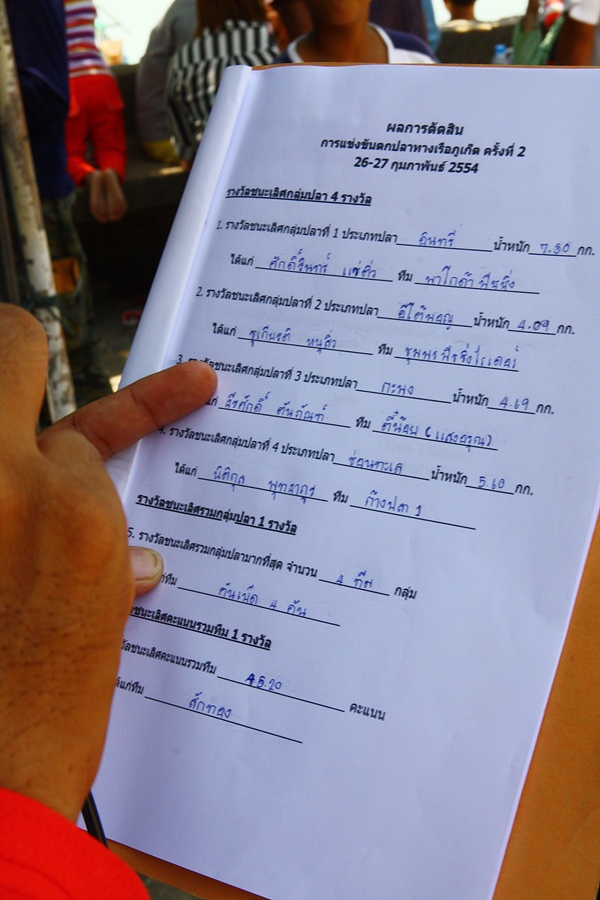 ผลการตัดสิน
การแข่งขันตกปลาทางเรือภูเก็ต ครั้งที่ 2
26-27 กุมภาพันธ์ 2554
รางวัลชนะเลิศกลุ่มปลา 4 รางวัล
1. รางวัลชนะเลิศกลุ่มปลาที่ 1 ประเภทปลา อินทรี น้ำหนัก 7.30 กก.
ได้แก่ ศักดิ์รินทร์ แซ่ติ่ว ทีม พาโกด้า ฟิชชิ่ง
2. รางวัลชนะเลิศกลุ่มปลาที่ 2 ประเภทปลา อีโต้มอญ น้ำหนัก 4.09 กก.
ได้แก่ ชูเกียรติ หนูติ่ว ทีม ชุมพรฟิชชิ่งไรเดอร์
3. รางวัลชนะเลิศกลุ่มปลาที่ 3 ประเภทปลา กะพง น้ำหนัก 4.69 กก.
แก่ ธีรศักดิ์ ตันภัณฑ์ ทีม ตี๋น้อย (แสงอรุณ)
4. รางวัลชนะเลิศกลุ่มปลาที่ 4 ประเภทปลา ช่อนทะเล น้ำหนัก 5.60 กก.
ได้แก่ นิติกุล ทีม ก้างปลา 1
รางวัลชนะเลิศรวมกลุ่มปลา 1 รางวัล
5. รางวัลชนะเลิศรวมกลุ่มปลามากที่สุด จำนวน 4 กลุ่ม
ทีม คันเบ็ด 4 คัน
ชนะเลิศคะแนนรวมทีม 1 รางวัล
วัลชนะเลิศคะแนนรวมทีม 45.70 คะแนน
ได้แก่ทีม ตักทอง